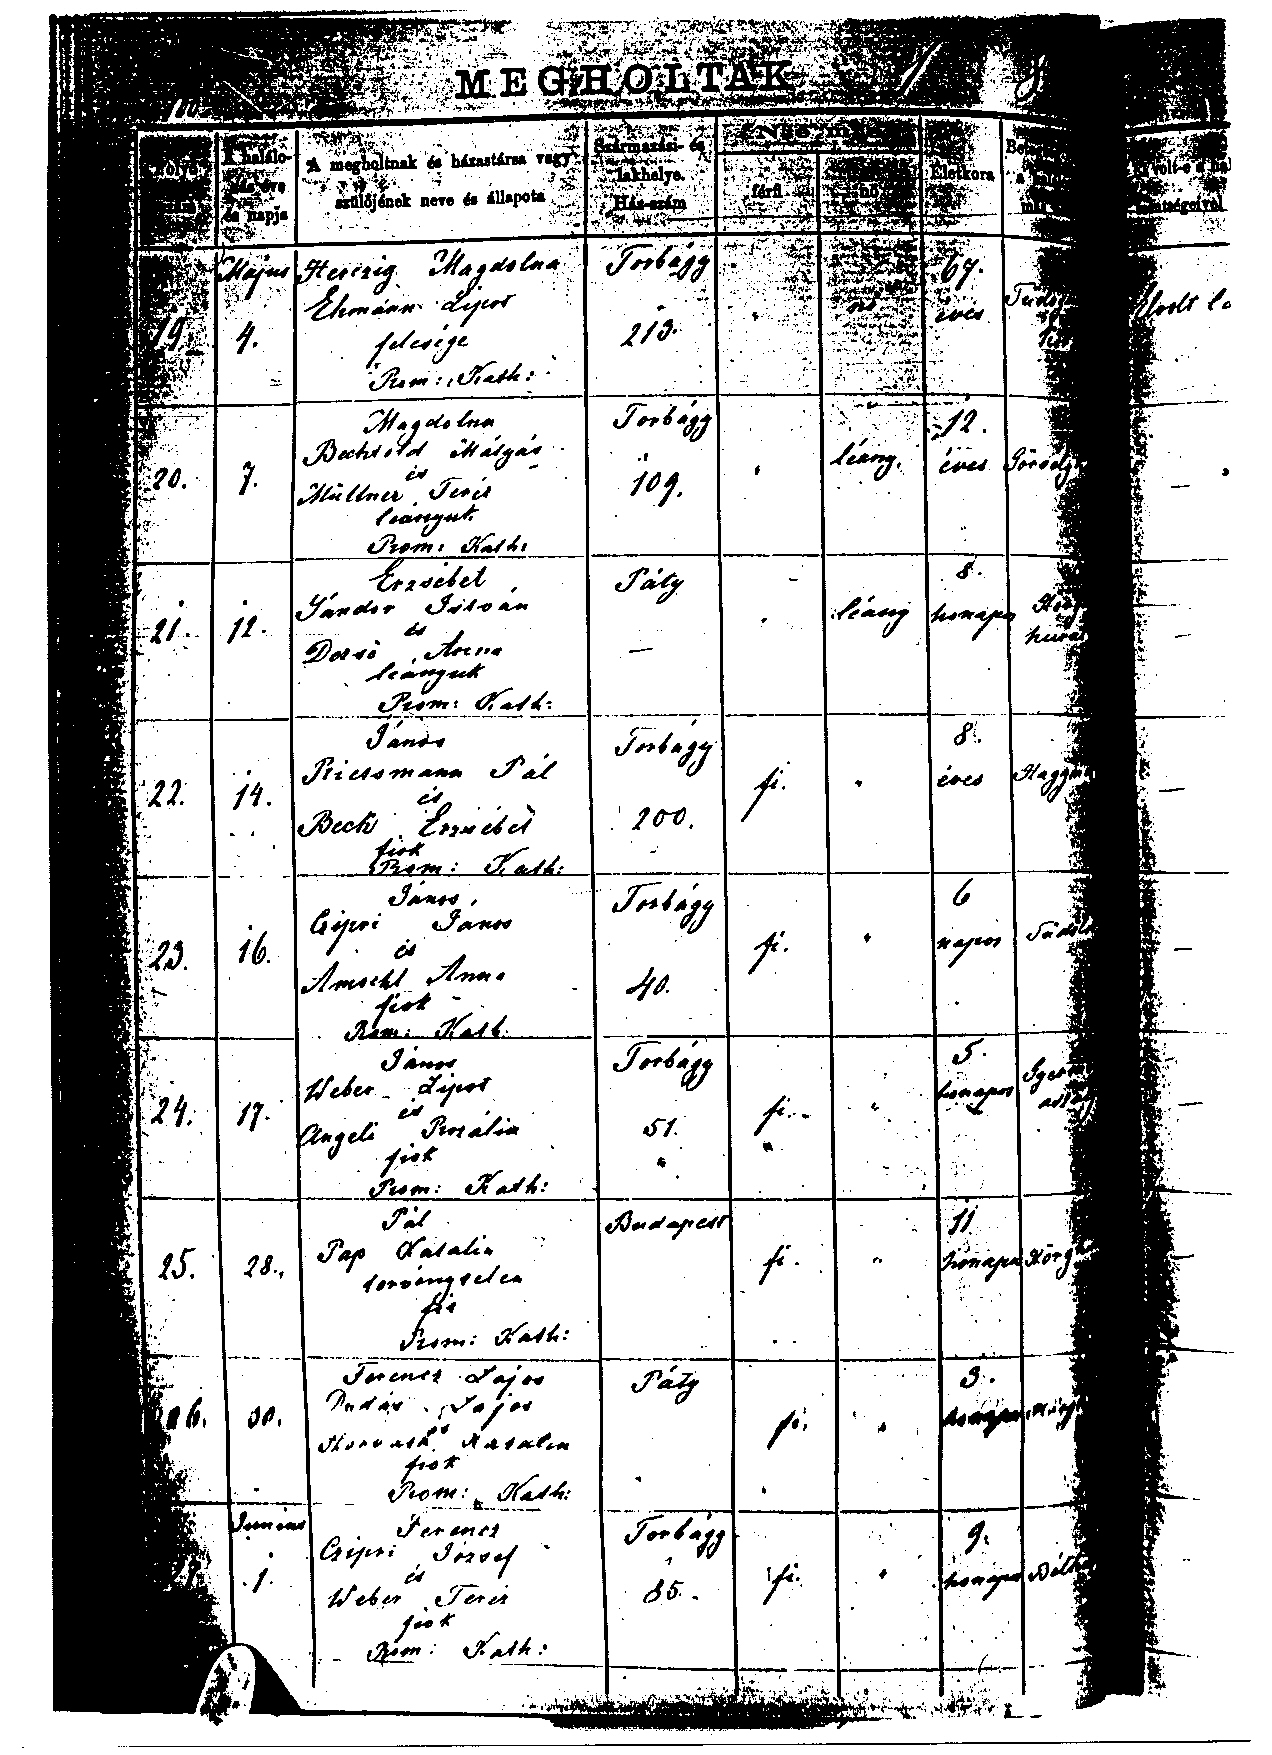 MEGHOLTAK
A halálo-
zás éve
és napja
A megholtnak és házastársa vagy
szülőjének neve és állapota
Származási- és
lakhelye.
Ház-szám
férfi
nő
Életkora
Május
19.
4.
Herczig Magdolna
Ehmann Lipot
felesége
Rom: Kath:
Torbágy
213.
nő
67.
éves
20.
7.
Magdolna
Bechtold Mátyás
és
Müllner Teréz
leányuk
Rom: Kath:
Torbágy
109.
leány.
12.
éves
21.
12.
Erzsébet
Sándor István
és
Dorsó Anna
leányuk
Rom: Kath:
Páty
—
leány
8.
honapos
22.
14.
János
Riessmann Pál
és
Beck Erzsébet
fiok
Rom: Kath:
Torbágy
200.
fi.
8.
éves
—
23.
16.
János
Czipri János
és
Amschl Anna
fiok
Rom: Kath:
Torbágy
40.
fi.
6
napos
—
24.
17.
János
Weber Lipot
és
Angeli Rozália
fiok
Rom: Kath:
Torbágy
51.
fi.
5.
honapos
—
25.
28.
Pál
Pap Katalin
törvénytelen
fia
Rom: Kath:
Budapest
fi.
11
honapos
26.
30.
Ferencz Lajos
Dudás Lajos
és
Horvath Katalin
fiok
Rom: Kath:
Páty
fi.
3.
honapos
Junius
1.
Ferencz
Czipri József
és
Weber Teréz
fiok
Rom: Kath:
Torbágy
85.
fi.
9.
honapos